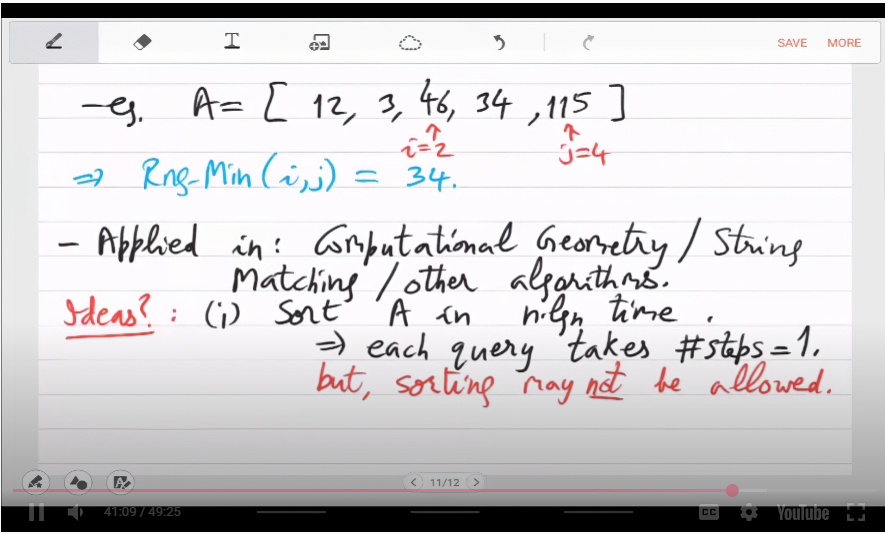 SAVE MORE
-eg. A= [ 12, 3, 46, 34 ,115 ]
i=2 j=4
⇒ Rng-Min(i,j) = 34.
- Applied in: Computational Geometry / String
Matching / other algorithms.
Ideas? : (i) Sort A in n.lgn time.
⇒ each query takes #steps=1.
but, sorting may not be allowed.
11/12
41:09 / 49:25 CC YouTube